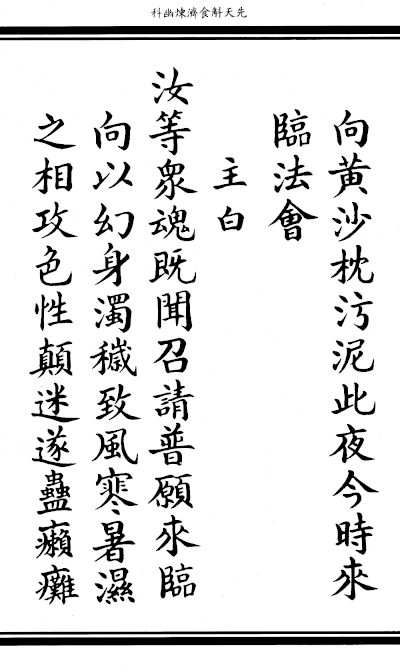 先天斛食濟煉幽科
向黃沙枕污泥此夜今時來
臨法會
主白
汝等衆魂既聞召請普願來臨
向以幻身濁穢致風寒暑濕
之相攻色性顛迷遂蠱癩癱